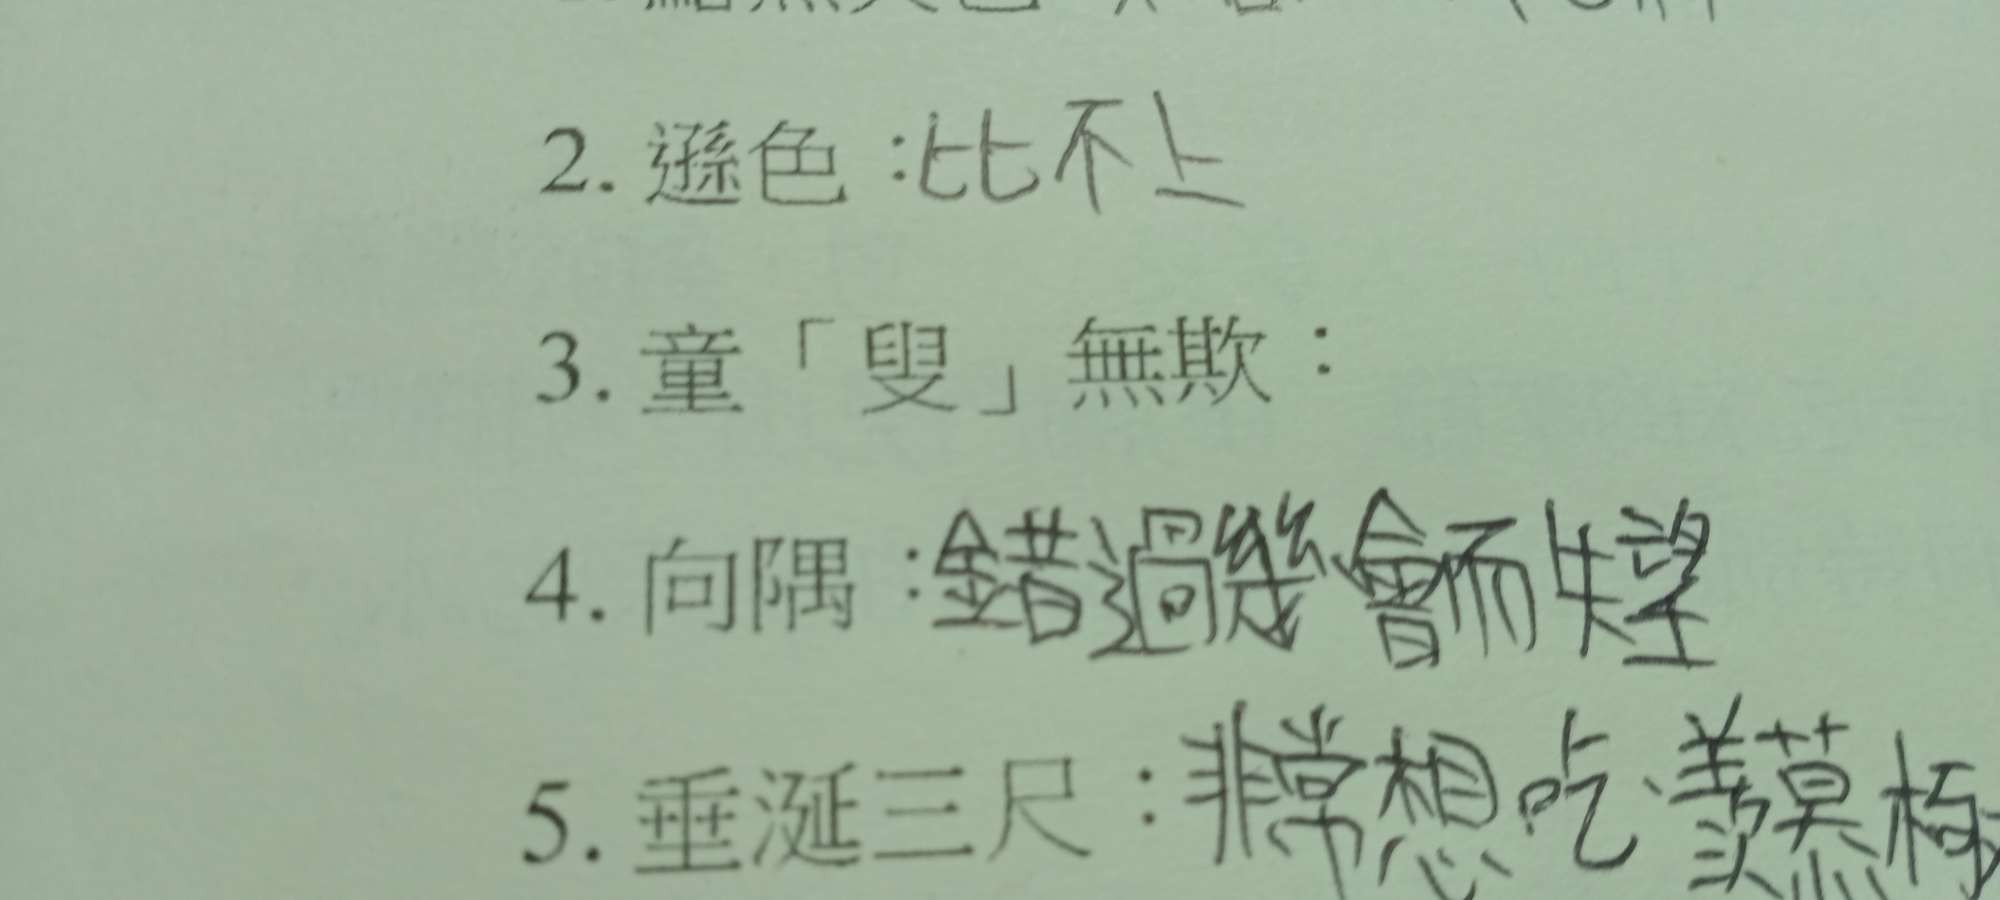 2. 遜色：比不上
3. 童「叟」無欺：
4. 向隅：錯過幾會而失望
5. 垂涎三尺：非常想吃、羨慕極